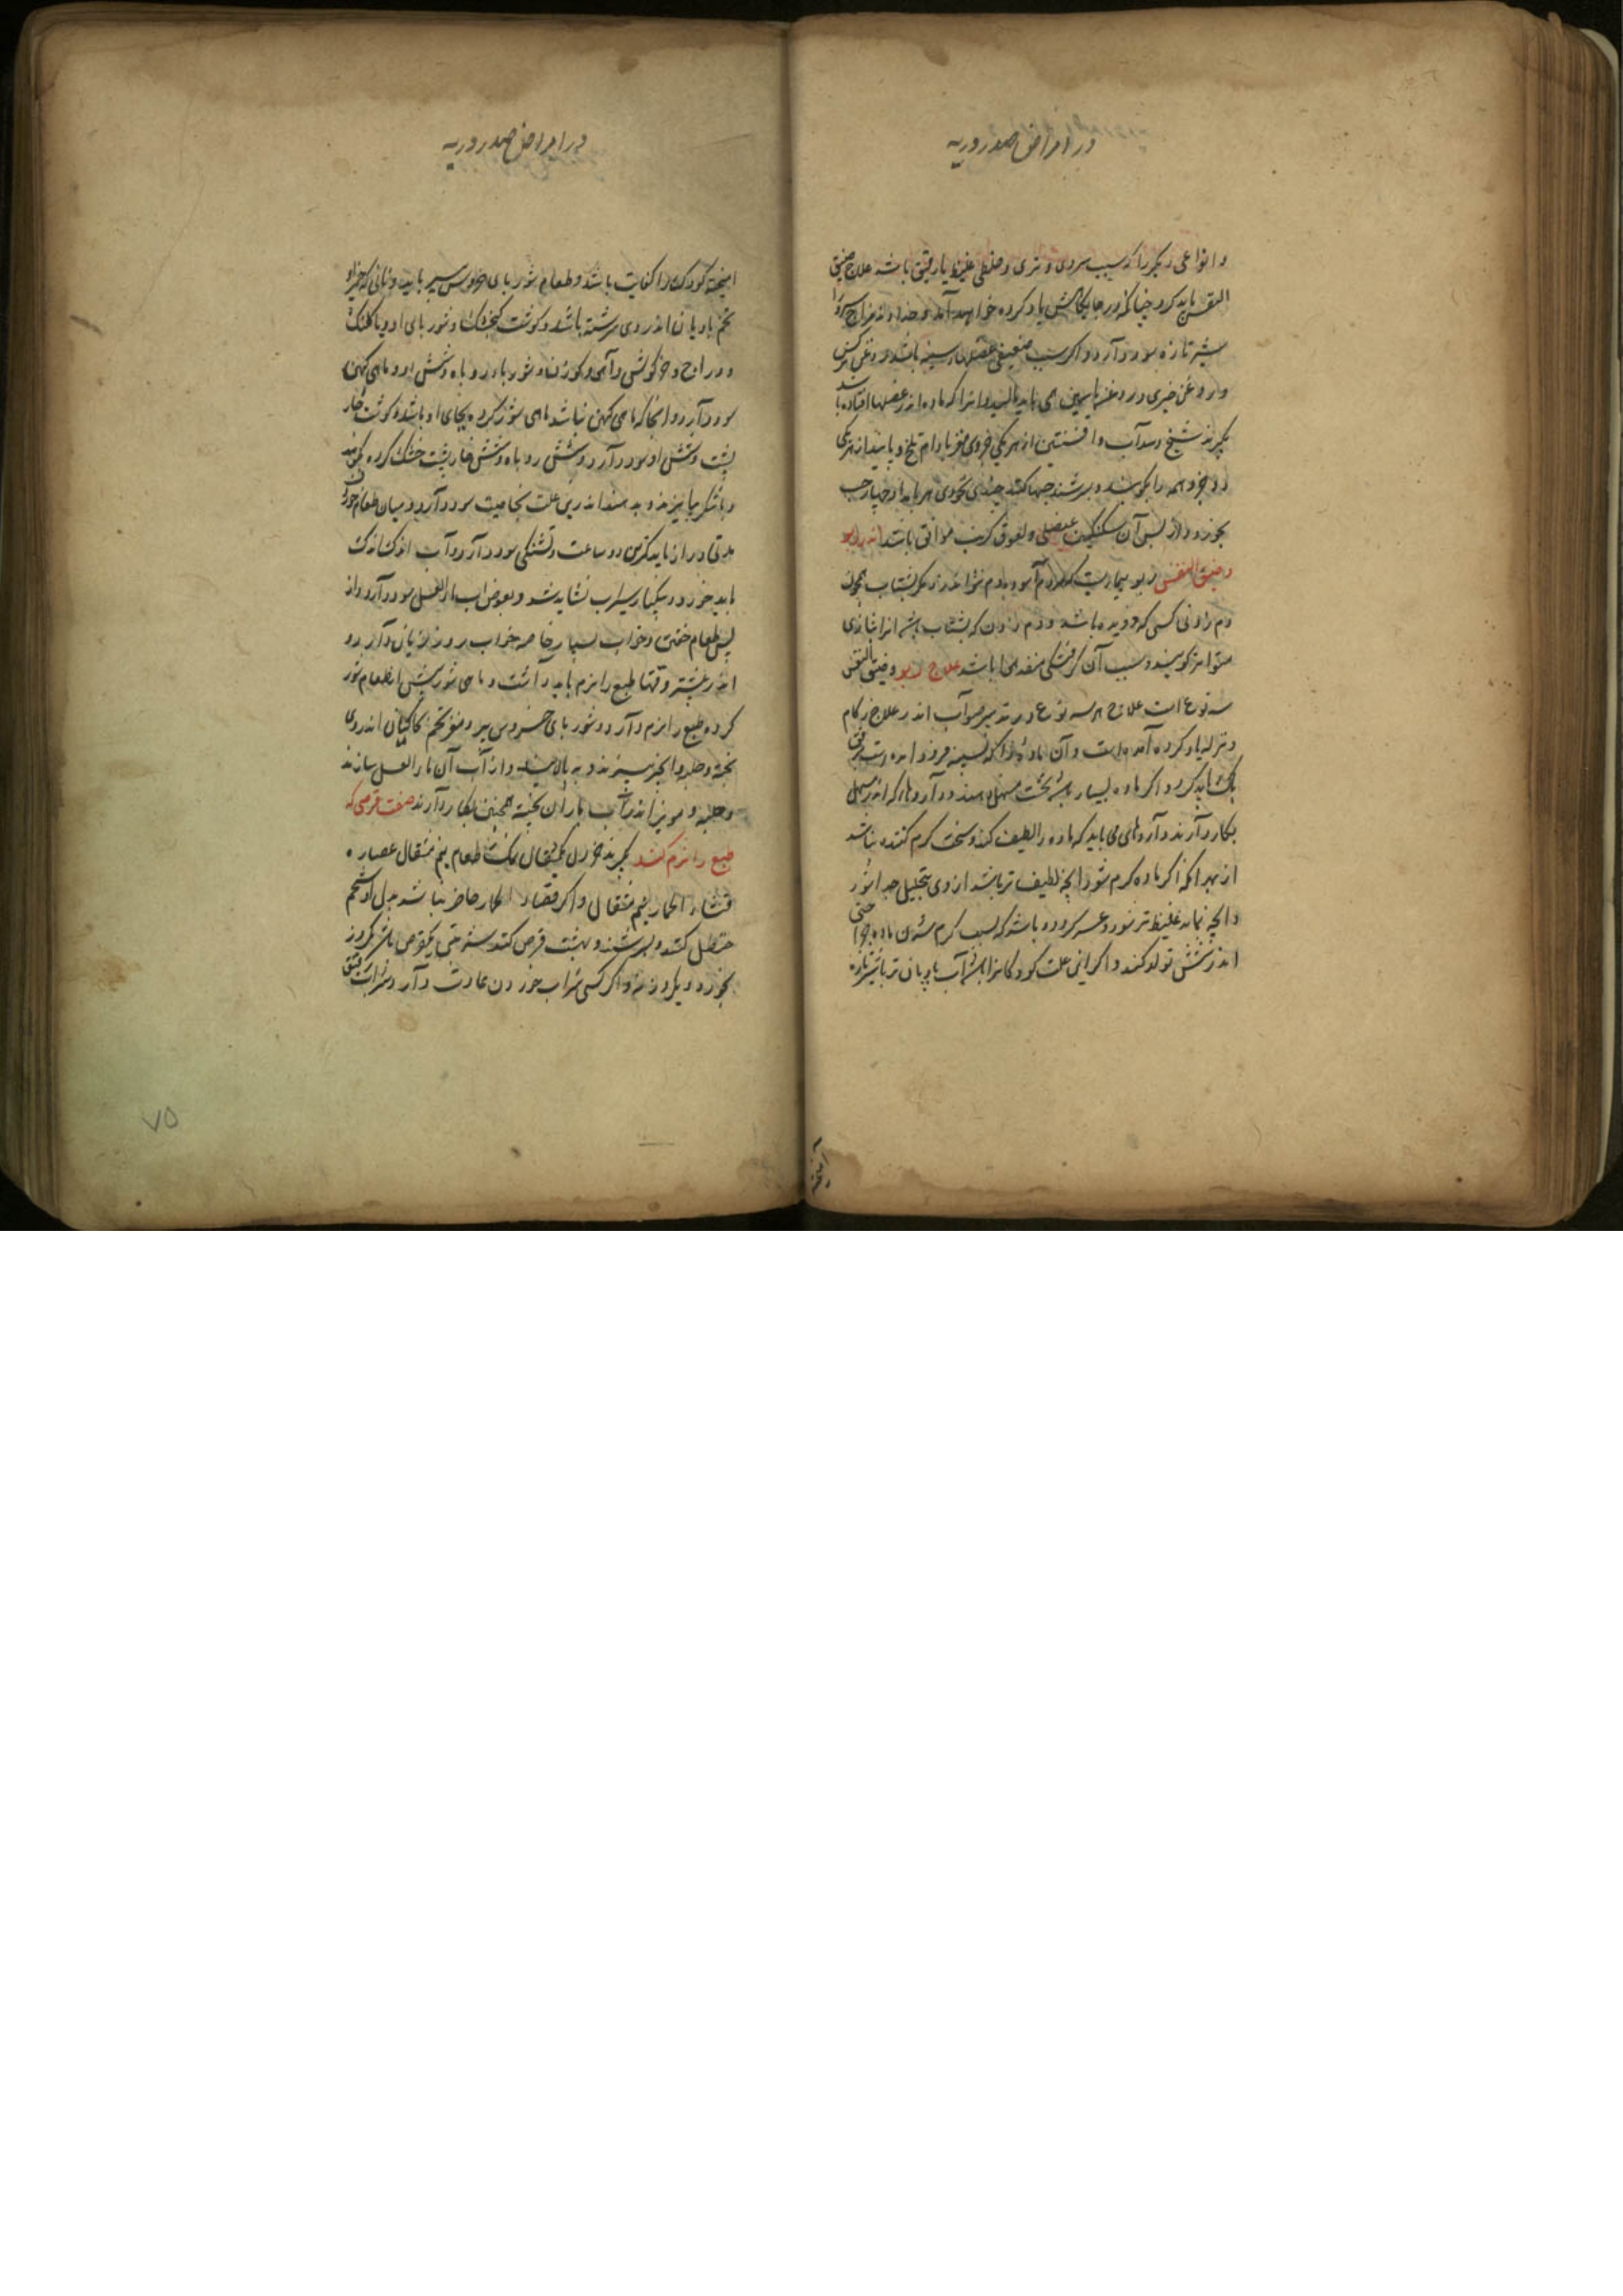 در امراض صدر و ریه
و انواعی دیگر را که سبب سردی و تری و خلطی غلیظ یا رقیق باشد علاج ضیق
النفس باید کرد چنانکه در جایگاهش یاد کرده خواهد آمد و خداوند مزاج سرد را
شیر تازه سود دارد و اگر سبب ضعیفی عضلهاء سینه باشد روغن نرگس
و روغن خیری و روغن یاسمین همی باید مالید و آنرا که ماده اندر عضلها افتاده باشد
بگیرند شیح و سداب و افسنتین از هر یکی جزوی مغز بادام تلخ و پانید از هر یکی
دو جزو همه را بکوبند و بسرشند حبها کنند چندی نخودی هر بامداد چهار حب
بخورد و از پس آن سکنگبین عنصلی و لعوق کرنب موافق باشد اندر ربو
و ضیق النفس ربو بیماریست که مردم آسوده دم نتواند زد مگر بشتاب همچون
دم زدنی کسی که دویده باشد و دم زدن که بشتاب باشد آنرا بتازی
متواتر گویند و سبب آن گرفتگی منفذها باشد علاج ربو و ضیق النفس
سه نوع است علاج هر سه نوع در تدبیر صواب اندر علاج زکام
و نزله یاد کرده آمده است و آن ماده را که بسینه فرود آمده است برفق
پاک باید کرد و اگر ماده بسیار باشد نخست مسهل دهند و داروها که اندر مسهل
بکار دارند داروهای می باید که ماده را لطیف کند و سخت گرم کننده نباشد
از بهر آنکه اگر ماده گرم شود آنچه لطیف تر باشد از وی بتحلیل جدا شود
و آنچه نماند غلیظ تر شود و عسر گردد و باشد که بسبب گرم شدن ماده جراحتی
اندر شش تولد کند و اگر این علت کودکانرا باشد آب بادیان تر با شیر تازه
آمیخته
در امراض صدر و ریه
آمیخته کودک را کفایت باشد و طعام شوربای خروس پیر باید و نانی که خمیر او
تخم بادیان اندر وی سرشته باشد و گوشت گنجشک و شوربای او و پا کلنگ
و دراج و خرگوش و آهو و گوزن و شوربا و روباه و شش او و ماهی کهن
سود دارد و آنجا که ماهی کهن نباشد ماهی شور کرده بجای او باشد و گوشت خار
پشت و شش او سود دارد و شش روباه و شش خارپشت خشک کرده بکوبند
و با شکر بیامیزند و بدهند اندرین علت بخاصیت سود دارد و میان طعام خوردن
مدتی دراز باید گذشتن دو ساعت و تشنگی سود دارد و آب اندک اندک
باید خورد و بیکبار سیراب نشاید شد و بعوض آب ماء العسل سود دارد و از
پس طعام خفتن و خواب بسیار خاصه خواب روز زیان دارد و
اندر بیشتر وقتها طبع را نرم باید داشت و ماهی شور پیش از طعام شور
کرده طبع را نرم دارد و شوربای خروس پیر و مغز تخم کاکیان اندر وی
پخته و حلبه و انجیر بپزند و بپالایند و از آب آن ماء العسل سازند
و حلبه و مویز اندر آب باران پخته همچنین بکار دارند صفت قرصی که
طبع را نرم کند بگیرند خردل یکمثقال نمک طعام نیم مثقال عصاره
قثاء الحمار نیم مثقال و اگر قثاء الحمار حاضر نباشد بدل او شحم
حنظل کنند و بسرشند و بهشت قرص کنند یکقرص یکروز
بخورد و یکروز نه و اگر کسی شراب خوردن عادت دارد شراب رقیق
۷۵